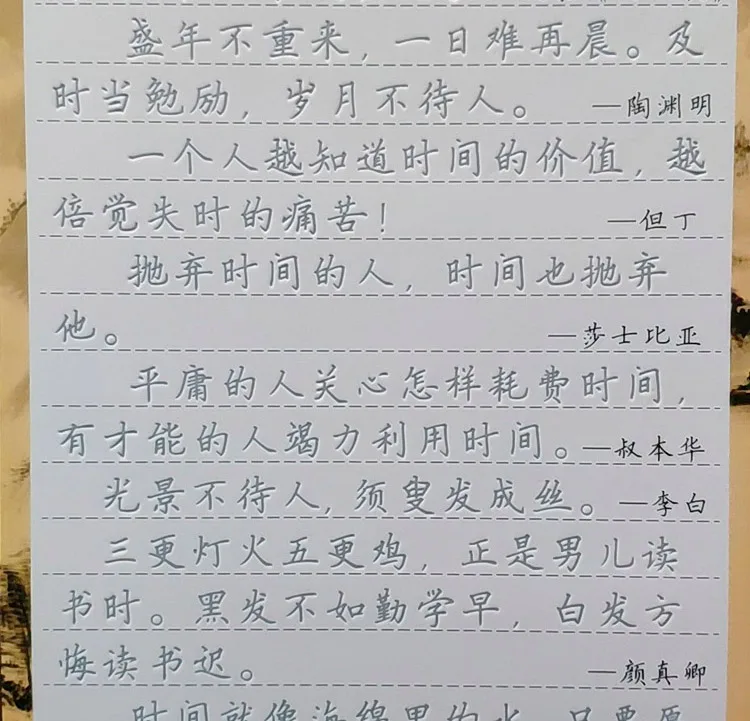 盛年不重来，一日难再晨。及
时当勉励，岁月不待人。 —陶渊明
一个人越知道时间的价值，越
倍觉失时的痛苦！ —但丁
抛弃时间的人，时间也抛弃
他。 —莎士比亚
平庸的人关心怎样耗费时间，
有才能的人竭力利用时间。—叔本华
光景不待人，须叟发成丝。—李白
三更灯火五更鸡，正是男儿读
书时。黑发不如勤学早，白发方
悔读书迟。 —颜真卿
时间就像海绵里的水，只要愿